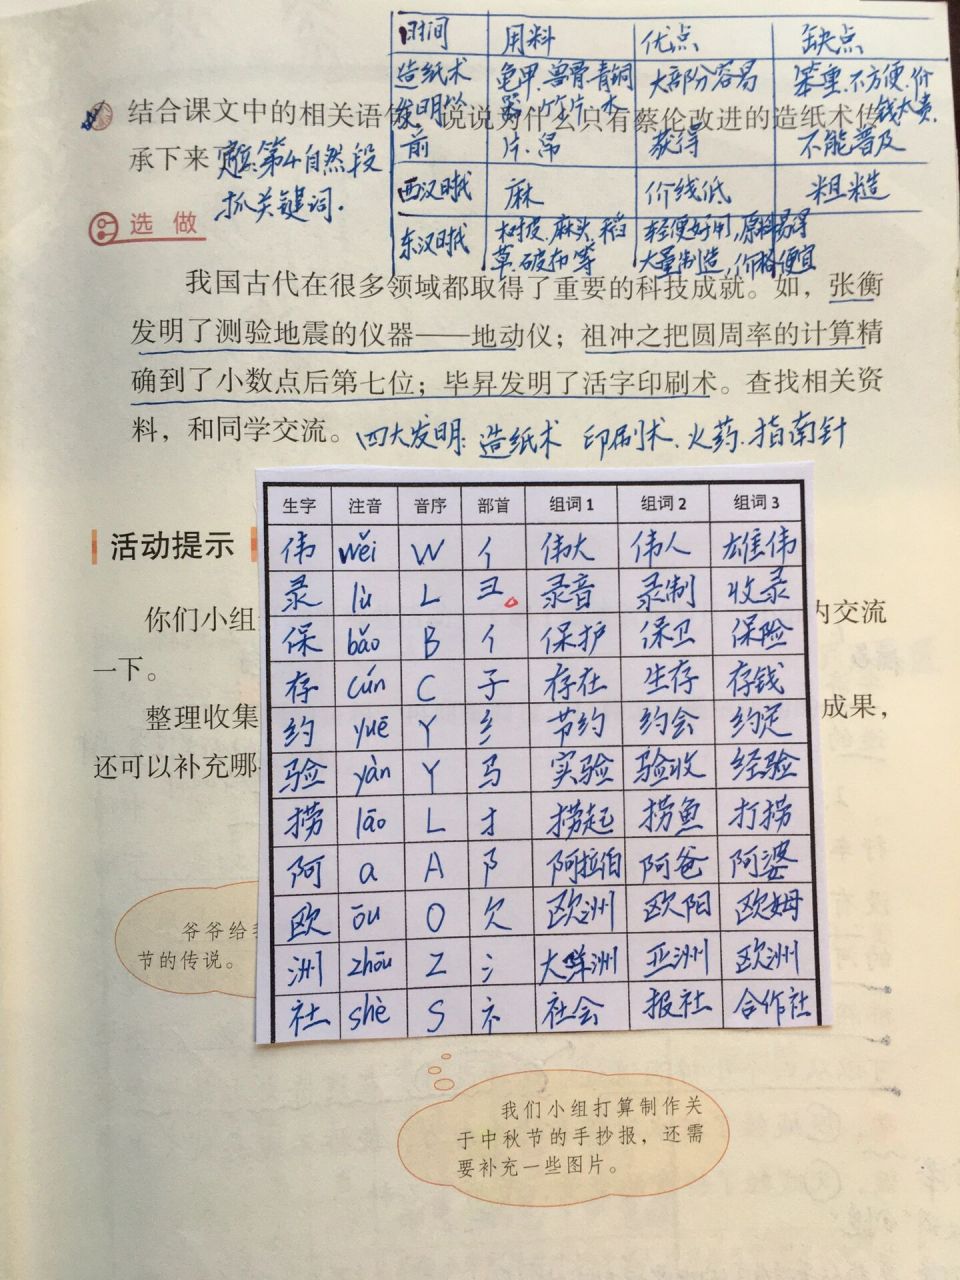 时间 用料 优点 缺点
造纸术发明以前 龟甲.兽骨.青铜器.竹片.木片.帛 大部分容易获得 笨重.不方便.价钱太贵.不能普及
西汉时代 麻 价钱低 粗糙
东汉时代 树皮.麻头.稻草.破布等 轻便好用,原料易得 大量制造,价格便宜
结合课文中的相关语句,说说为什么只有蔡伦改进的造纸术传
承下来
第4自然段
抓关键词.
选做
我国古代在很多领域都取得了重要的科技成就。如,张衡
发明了测验地震的仪器——地动仪;祖冲之把圆周率的计算精
确到了小数点后第七位;毕昇发明了活字印刷术。查找相关资
料,和同学交流。四大发明:造纸术 印刷术.火药.指南针
活动提示
你们小组
内交流
一下。
整理收集
成果,
还可以补充哪
生字 注音 音序 部首 组词1 组词2 组词3
伟 wěi W 亻 伟大 伟人 雄伟
录 lù L 彐 录音 录制 收录
保 bǎo B 亻 保护 保卫 保险
存 cún C 子 存在 生存 存钱
约 yuē Y 纟 节约 约会 约定
验 yàn Y 马 实验 验收 经验
捞 lāo L 扌 捞起 捞鱼 打捞
阿 a A 阝 阿拉伯 阿爸 阿婆
欧 ōu O 欠 欧洲 欧阳 欧姆
洲 zhōu Z 氵 大洋洲 亚洲 欧洲
社 shè S 礻 社会 报社 合作社
爷爷给我
节的传说。
我们小组打算制作关
于中秋节的手抄报,还需
要补充一些图片。